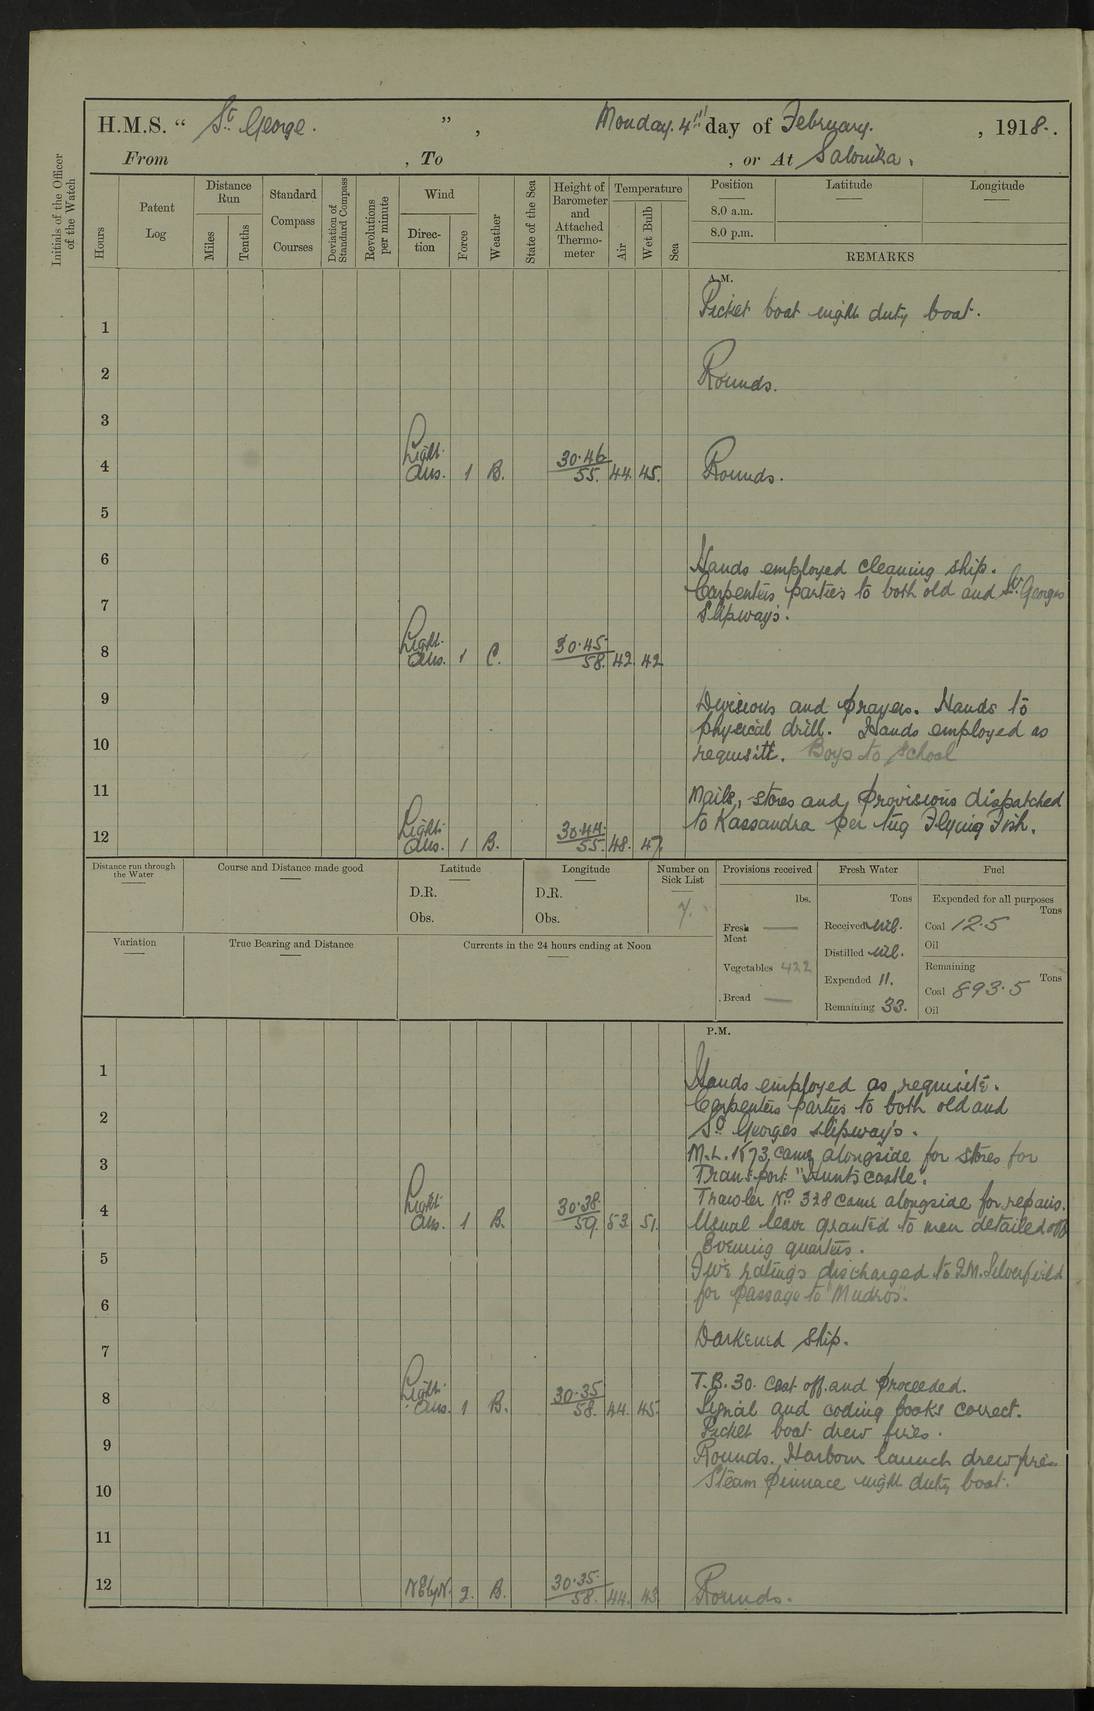 H.M.S. “ St. George. ” , Monday. 4th day of February. , 1918.
From , To , or At Salonika.
Initials of the Officer of the Watch
Hours
Patent Log
Distance Run
Miles
Tenths
Standard Compass Courses
Deviation of Standard Compass
Revolutions per minute
Wind
Direction
Force
Weather
State of the Sea
Height of Barometer and Attached Thermometer
Temperature
Air
Wet Bulb
Sea
Position Latitude Longitude
8.0 a.m.
8.0 p.m.
REMARKS
A.M.
1 Picket boat night duty boat.
2 Rounds.
3
4 Light Airs. 1 B. 30.46 55. 44. 45. Rounds.
5
6 Hands employed cleaning ship.
Carpenters parties to both old and St. Georges
7 Slipways.
8 Light Airs. 1 C. 30.45 58. 42. 42
9 Divisions and prayers. Hands to
physical drill. Hands employed as
10 requisite. Boys to School
11 Mails, stores and provisions dispatched
to Kassandra per tug Flying Fish.
12 Light Airs. 1 B. 30.44 55. 48. 47.
Distance run through the Water
Course and Distance made good
Latitude
D.R.
Obs.
Longitude
D.R.
Obs.
Number on Sick List
7.
Provisions received
lbs.
Fresh Meat —
Vegetables 422
Bread —
Fresh Water
Tons
Received nil.
Distilled nil.
Expended 11.
Remaining 33.
Fuel
Expended for all purposes
Tons
Coal 12.5
Oil
Remaining
Tons
Coal 893.5
Oil
Variation
True Bearing and Distance
Currents in the 24 hours ending at Noon
P.M.
1 Hands employed as requisite.
Carpenters parties to both old and
2 St. Georges slipways.
M.L. came alongside for stores for
3 Transport "Huntscastle".
Trawler No. 328 came alongside for repairs.
4 Light Airs. 1 B. 30.38 59. 53. 51. Usual leave granted to men detailed off
Evening quarters.
5 ratings discharged to Silverfield
6 for passage to Mudros.
7 Darkened Ship.
T.B. 30. Cast off and proceeded.
8 Light Airs. 1 B. 30.35 58. 44. 45. Signal and coding books correct.
Picket boat drew fires.
9 Rounds. Harbour launch drew fires
10 Steam pinnace night duty boat.
11
12 NEbyN. 2. B. 30.35 58. 44. 43 Rounds.